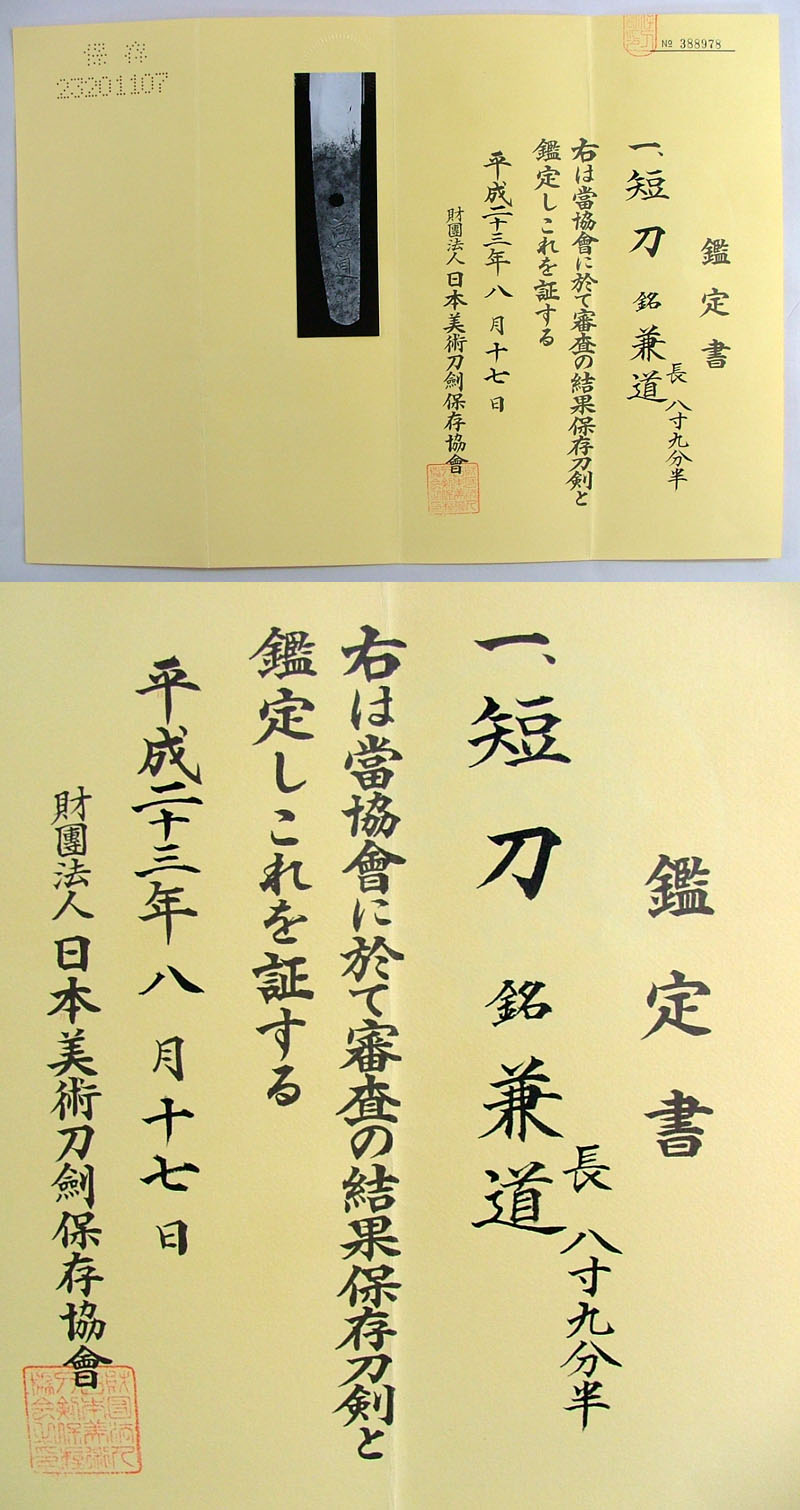 保存
23201107
兼道
№ 388978
鑑定書
一、短刀 銘 兼道
長 八寸九分半
右は當協會に於て審査の結果保存刀剣と
鑑定しこれを証する
平成二十三年八月十七日
財團法人 日本美術刀劍保存協會
鑑定書
一、短刀 銘 兼道
長 八寸九分半
右は當協會に於て審査の結果保存刀剣と
鑑定しこれを証する
平成二十三年八月十七日
財團法人 日本美術刀劍保存協會